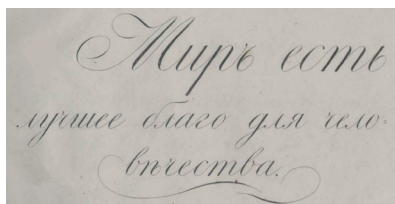 Миръ есть
лучшее благо для чело-
вѣчества.